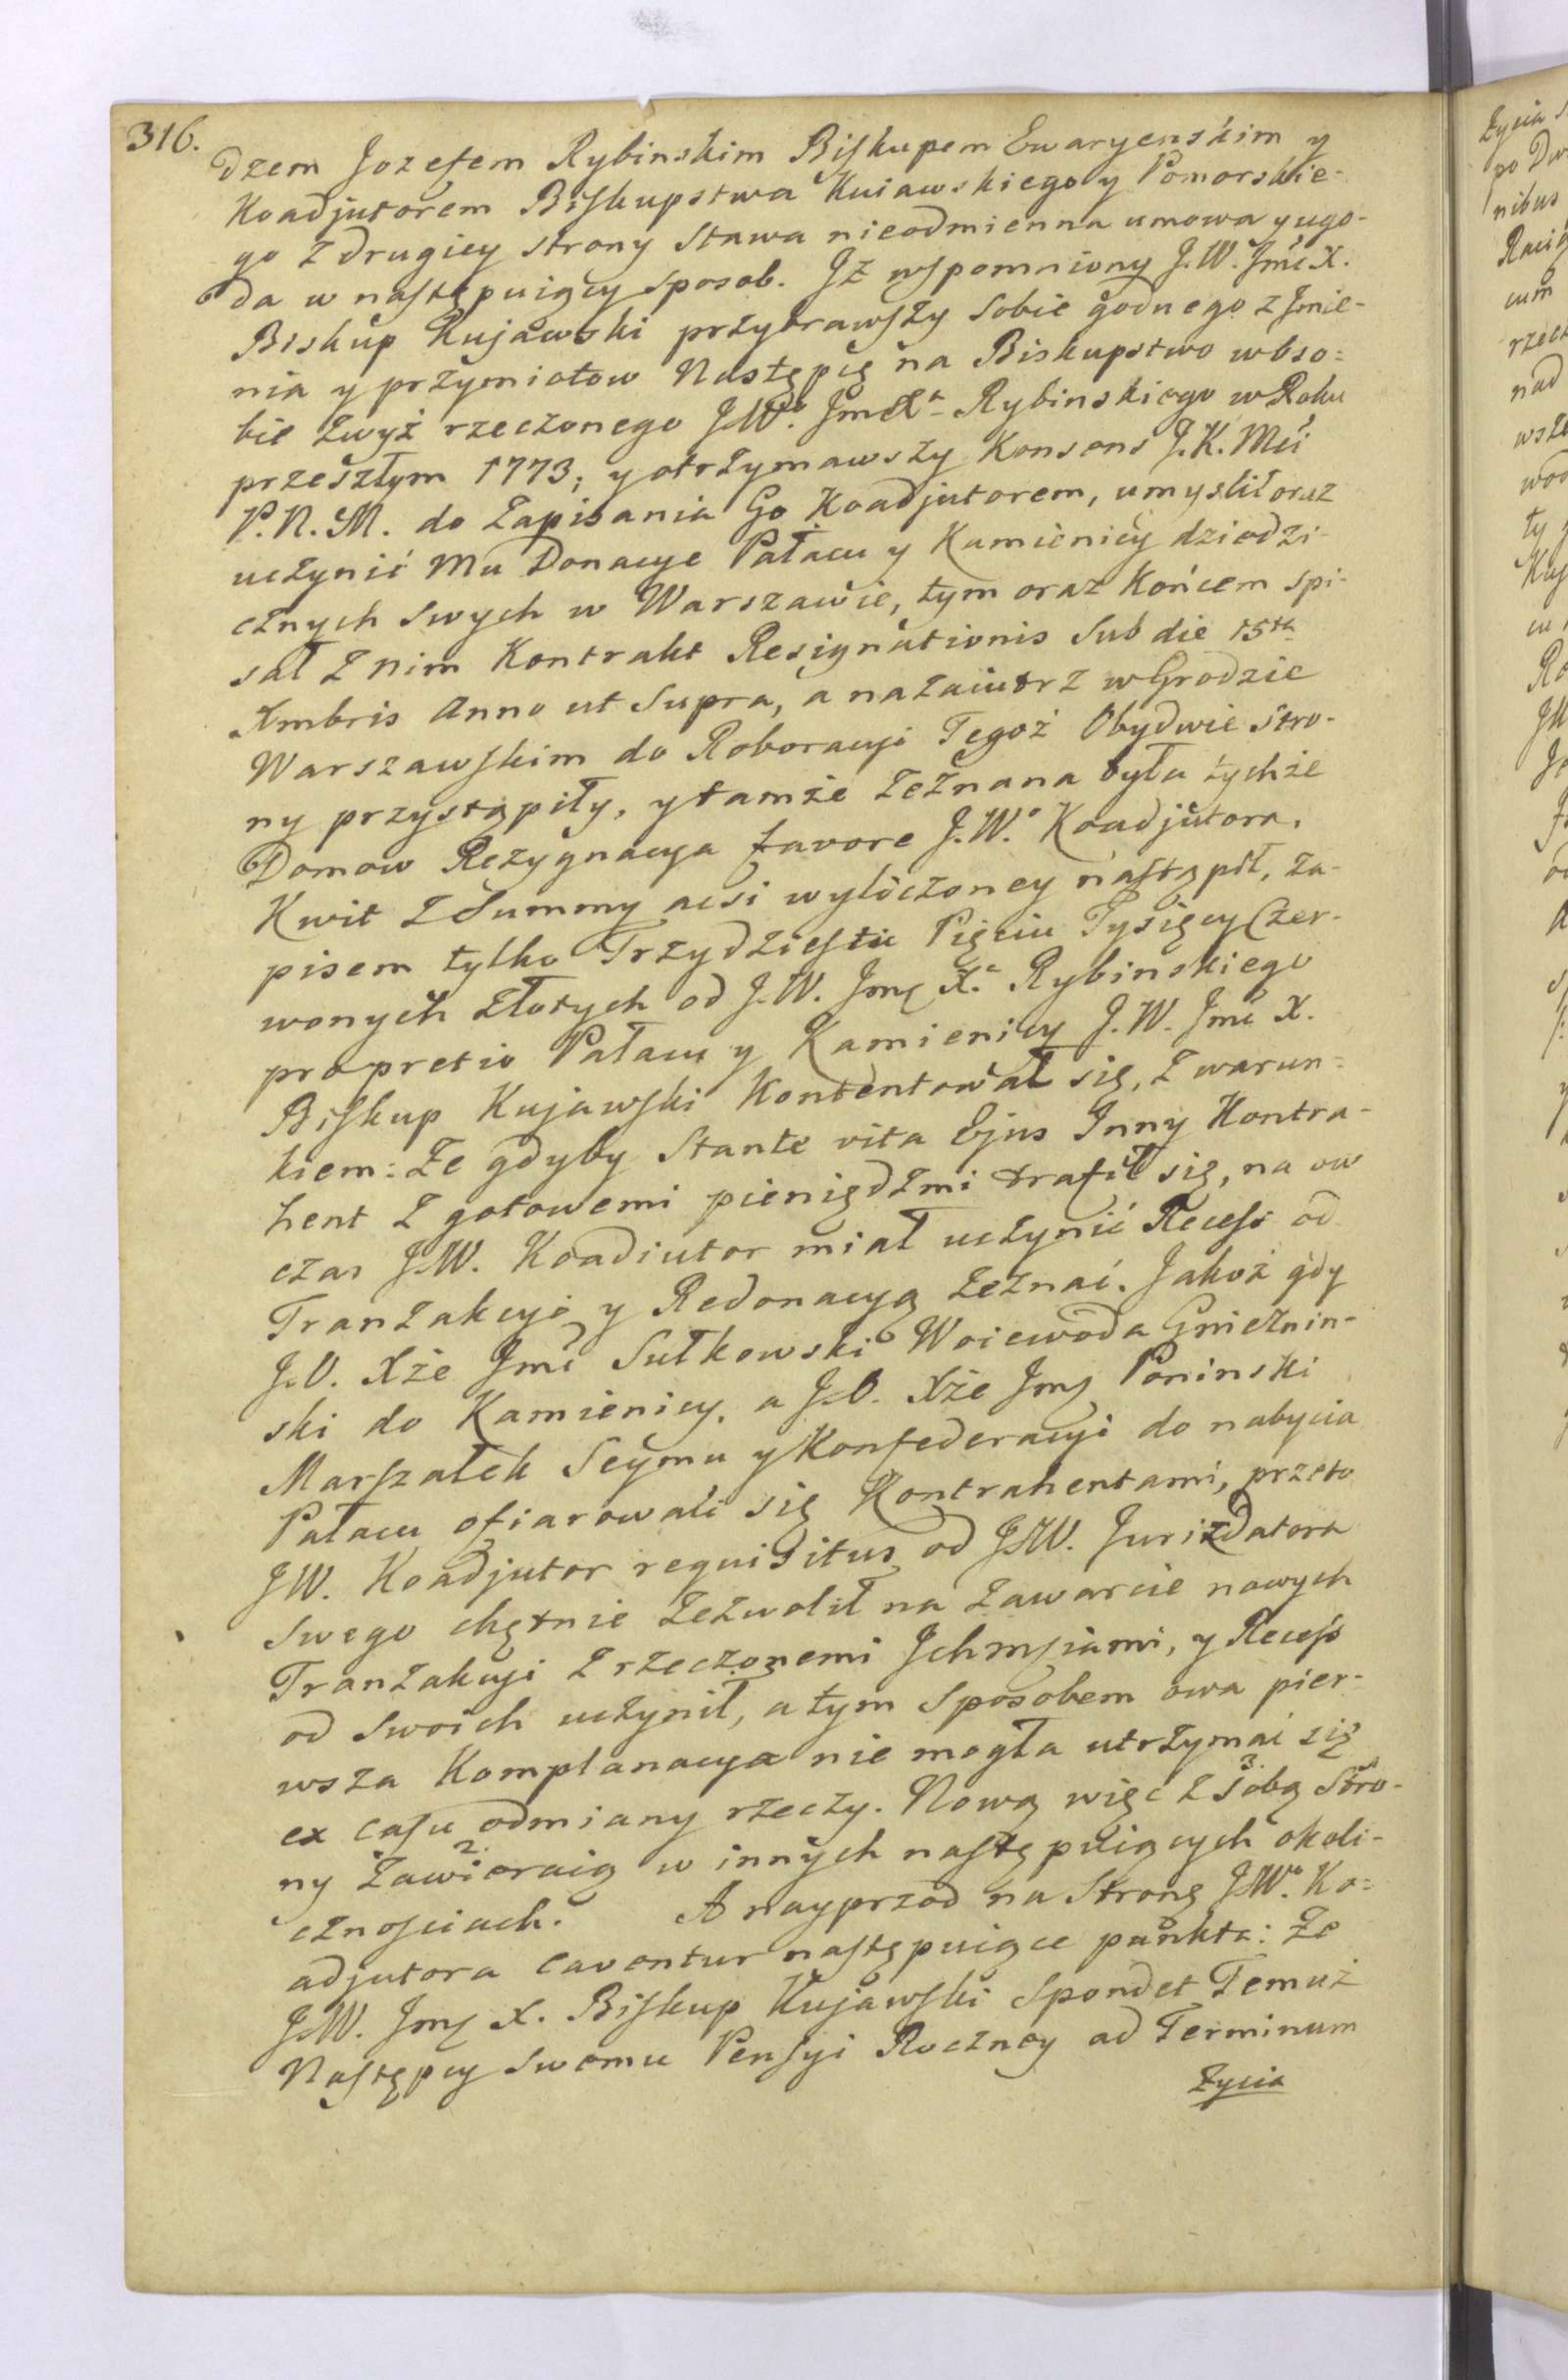 316.
dzem Jozefem Rybinskim Biskupem Ewaryenskim y
Koadjutorem Biskupstwa Kuiawskiego y Pomorskie-
go z drugiey strony Stawa nieodmienna umowa y ugo-
da w następuiący sposob. Iż wspomniony J.W. Jmć X.
Biskup Kujawski przybrawszy sobie godnego z Jmie-
nia y przymiotow Następcę na Biskupstwo w Oso=
bie zwyż rzeczonego J.W.o Jmć X.a Rybinskiego w Roku
przeszłym 1773; y otrzymawszy Konsens J.K. Mći
P.N.M. do Zapisania Go Koadjutorem, umyslił oraz
uczynić Mu Donacye Pałacu y Kamienicy dziedzi-
cznych swych w Warszawie, tym oraz końcem spi-
sał z nim Kontrakt Resignationis sub die 15ta
Xmbris Anno ut Supra, a nazaiutrz w Grodzie
Warszawskim do Roboracyi Tegoż Obydwie Stro-
ny przystąpiły, y tamże zeznana była tychże
Domow Rezygnacya favore J.W.o Koadjutora.
Kwit z Summy acsi wyliczoney nastąpił, za-
pisem tylko Trzydziestu Pięciu Tysięcy Czer-
wonych złotych od J.W. Jmci X.a Rybinskiego
pro pretio Pałacu y Kamienicy J.W. Jmć X.
Biskup Kujawski kontentował się, z warun=
kiem: Ze gdyby stante vita Ejus Inny Kontra-
hent z gotowemi pieniędzmi trafił się, na ow
czas J.W. Koadiutor miał uczynić Recess od
Tranzakcyi y Redonacyą zeznać. Jakoż gdy
J.O. Xże Jmć Sułkowski Woiewoda Gnieznin-
ski do Kamienicy, a J.O. Xże Jmci Poninski
Marszałek Seymu y Konfederacyi do nabycia
Pałacu ofiarowali się Kontrahentami, przeto
JW. Koadjutor requisitus od J.W. Jurisdatora
swego chętnie zezwolił na zawarcie nowych
Tranzakcyi z rzeczonemi Jchmciami, y Recess
od swoich uczynił, a tym sposobem owa pier-
wsza Komplanacya nie mogła utrzymać się
ex casu odmiany rzeczy. Nową więc z sobą 3. Stro-
ny zawieraią 2. w innych następuiących okoli-
cznosciach. A nayprzod na Stronę J.W.o Ko=
adjutora caventur następuiące punkta: Ze
J.W. Jmci X. Biskup Kujawski spondet Temuż
Następcy swemu Pensyi Roczney ad Terminum
życia